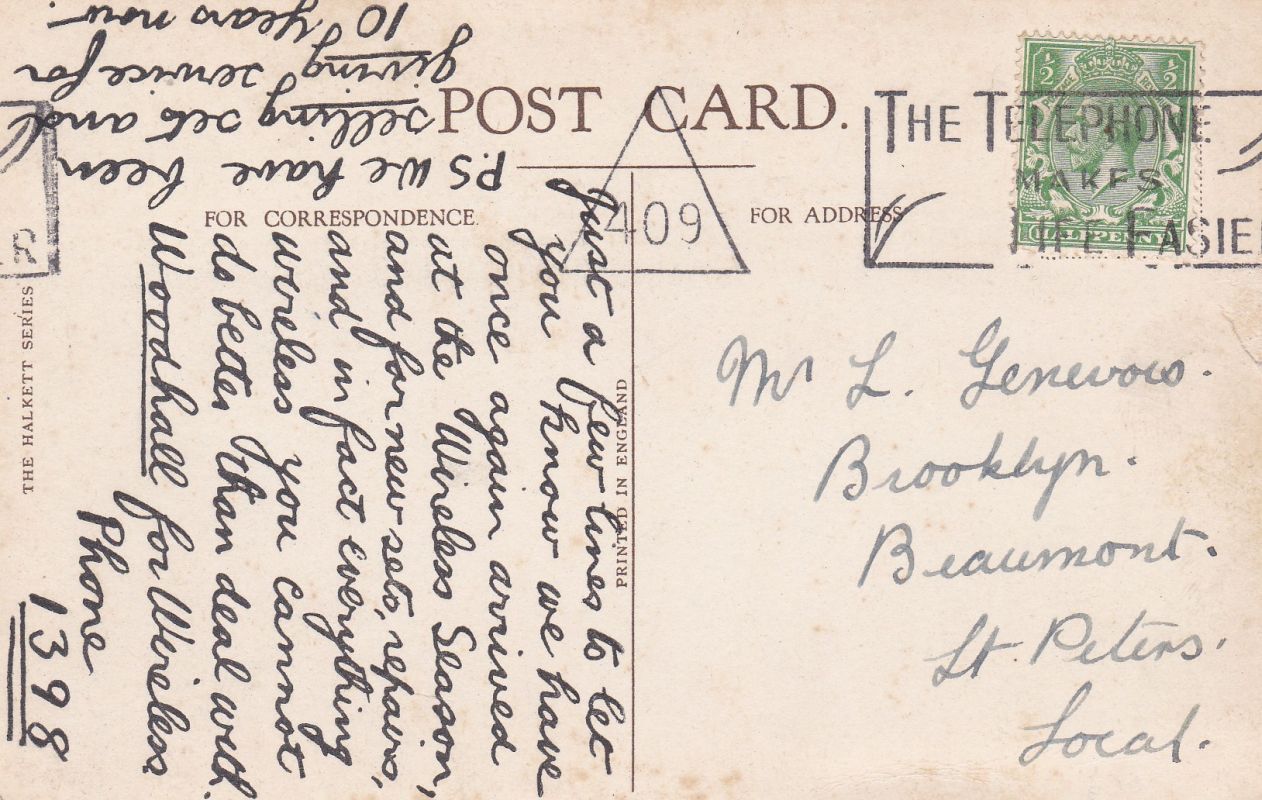 POST CARD.
FOR CORRESPONDENCE
FOR ADDRESS
THE HALKETT SERIES
PRINTED IN ENGLAND
409
THE TELEPHONE
MAKES
LIFE EASIER
R
½ ½
HALFPENNY
Just a few lines to let
you know we have
once again arrived
at the Wireless Season,
and for new sets, repairs,
and in fact everything
wireless you cannot
do better than deal with
Woodhall for Wireless
Phone
1398
P.S We have been
selling sets and
giving service for
10 years now.
Mr L. Genevois.
Brooklyn.
Beaumont.
St Peters.
Local.